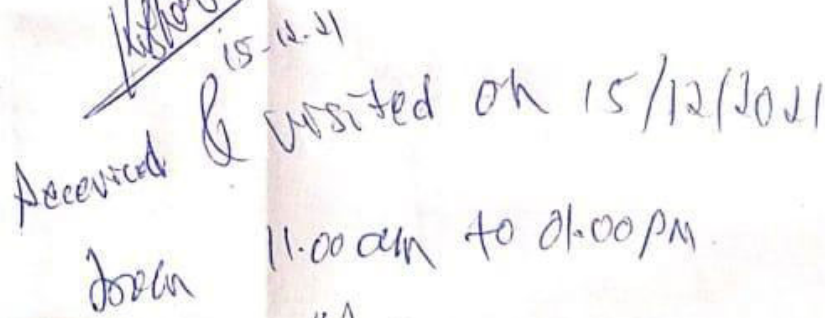 15-12-21
Received & visited on 15/12/2021
from 11.00 am to 01.00 PM